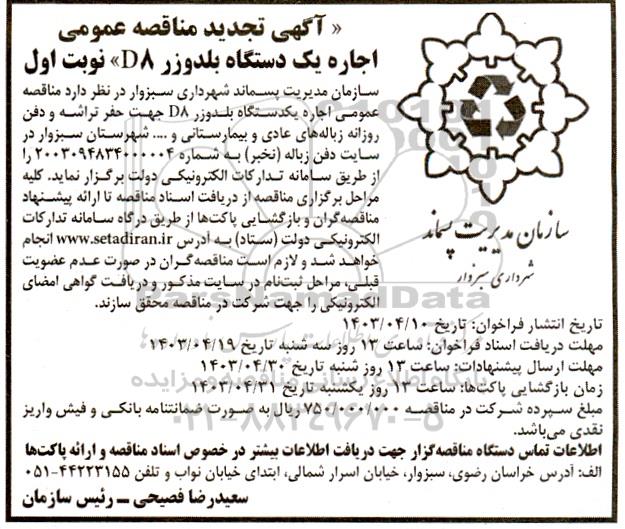 « آگهی تجدید مناقصه عمومی
اجاره یک دستگاه بلدوزر D۸» نوبت اول
سازمان مدیریت پسماند شهرداری سبزوار در نظر دارد مناقصه
عمومی اجاره یکدستگاه بلدوزر D۸ جهت حفر ترانشه و دفن
روزانه زباله‌های عادی و بیمارستانی و .... شهرستان سبزوار در
سایت دفن زباله (نخبر) به شماره ۲۰۰۳۰۹۴۸۳۴۰۰۰۰۰۴ را
از طریق سامانه تدارکات الکترونیکی دولت برگزار نماید. کلیه
مراحل برگزاری مناقصه از دریافت اسناد مناقصه تا ارائه پیشنهاد
مناقصه‌گران و بازگشایی پاکت‌ها از طریق درگاه سامانه تدارکات
الکترونیکی دولت (ستاد) به آدرس www.setadiran.ir انجام
خواهد شد و لازم است مناقصه‌گران در صورت عدم عضویت
قبلی، مراحل ثبت‌نام در سایت مذکور و دریافت گواهی امضای
الکترونیکی را جهت شرکت در مناقصه محقق سازند.
سازمان مدیریت پسماند
شهرداری سبزوار
تاریخ انتشار فراخوان: تاریخ ۱۴۰۳/۰۴/۱۰
مهلت دریافت اسناد فراخوان: ساعت ۱۳ روز سه شنبه تاریخ ۱۴۰۳/۰۴/۱۹
مهلت ارسال پیشنهادات: ساعت ۱۳ روز شنبه تاریخ ۱۴۰۳/۰۴/۳۰
زمان بازگشایی پاکت‌ها: ساعت ۱۳ روز یکشنبه تاریخ ۱۴۰۳/۰۴/۳۱
مبلغ سپرده شرکت در مناقصه ۷۵۰/۰۰۰/۰۰۰ ریال به صورت ضمانتنامه بانکی و فیش واریز
نقدی می‌باشد.
اطلاعات تماس دستگاه مناقصه‌گزار جهت دریافت اطلاعات بیشتر در خصوص اسناد مناقصه و ارائه پاکت‌ها
الف: آدرس خراسان رضوی، سبزوار، خیابان اسرار شمالی، ابتدای خیابان نواب و تلفن ۴۴۲۲۳۱۵۵-۰۵۱
سعیدرضا فصیحی – رئیس سازمان
ParsNamadData
۰۲۱-۸۸۳۴۹۶۷۰-۵